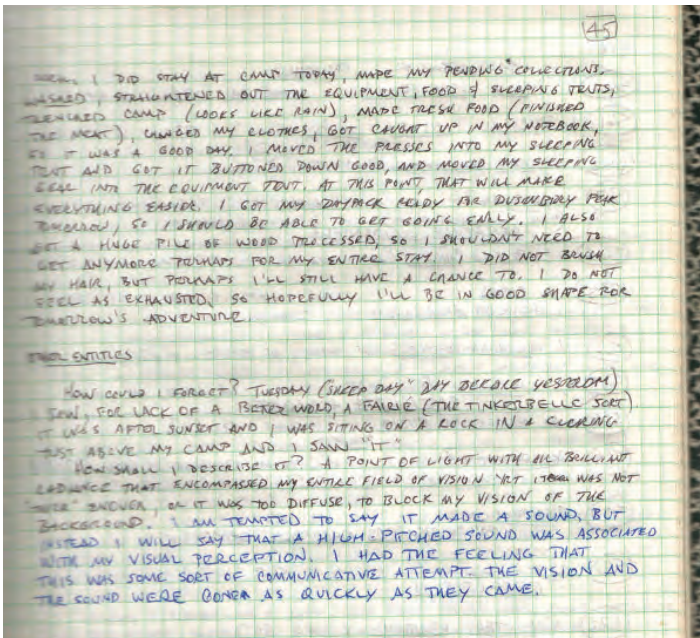 45
I DID STAY AT CAMP TODAY, MADE MY PENDING COLLECTIONS,
WASHED, STRAIGHTENED OUT THE EQUIPMENT, FOOD & SLEEPING TENTS,
CAMP (LOOKS LIKE RAIN), MADE FRESH FOOD (FINISHED
THE MEAT), CHANGED MY CLOTHES, GOT CAUGHT UP IN MY NOTEBOOK,
SO IT WAS A GOOD DAY. I MOVED THE PRESSES INTO MY SLEEPING
TENT AND GOT IT BUTTONED DOWN GOOD, AND MOVED MY SLEEPING
GEAR INTO THE EQUIPMENT TENT. AT THIS POINT, THAT WILL MAKE
EVERYTHING EASIER. I GOT MY DAYPACK READY FOR DUSENBERY PEAK
TOMORROW, SO I SHOULD BE ABLE TO GET GOING EARLY. I ALSO
GOT A HUGE PILE OF WOOD PROCESSED, SO I SHOULDN'T NEED TO
GET ANYMORE PERHAPS FOR MY ENTIRE STAY. I DID NOT BRUSH
MY HAIR, BUT PERHAPS I'LL STILL HAVE A CHANCE TO. I DO NOT
FEEL AS EXHAUSTED, SO HOPEFULLY I'LL BE IN GOOD SHAPE FOR
TOMORROW'S ADVENTURE.
ENTITIES
HOW COULD I FORGET? TUESDAY ( DAY" DAY BEFORE YESTERDAY)
I SAW, FOR LACK OF A BETTER WORD, A FAIRIE (THE TINKERBELLE SORT)
IT WAS AFTER SUNSET AND I WAS SITING ON A ROCK IN A CLEARING
JUST ABOVE MY CAMP AND I SAW "IT"
HOW SHALL I DESCRIBE IT? A POINT OF LIGHT WITH BRILLIANT
RADIANCE THAT ENCOMPASSED MY ENTIRE FIELD OF VISION YET WAS NOT
ENOUGH, OR IT WAS TOO DIFFUSE, TO BLOCK MY VISION OF THE
BACKGROUND. I AM TEMPTED TO SAY IT MADE A SOUND, BUT
INSTEAD I WILL SAY THAT A HIGH-PITCHED SOUND WAS ASSOCIATED
WITH MY VISUAL PERCEPTION. I HAD THE FEELING THAT
THIS WAS SOME SORT OF COMMUNICATIVE ATTEMPT. THE VISION AND
THE SOUND WERE GONE AS QUICKLY AS THEY CAME.